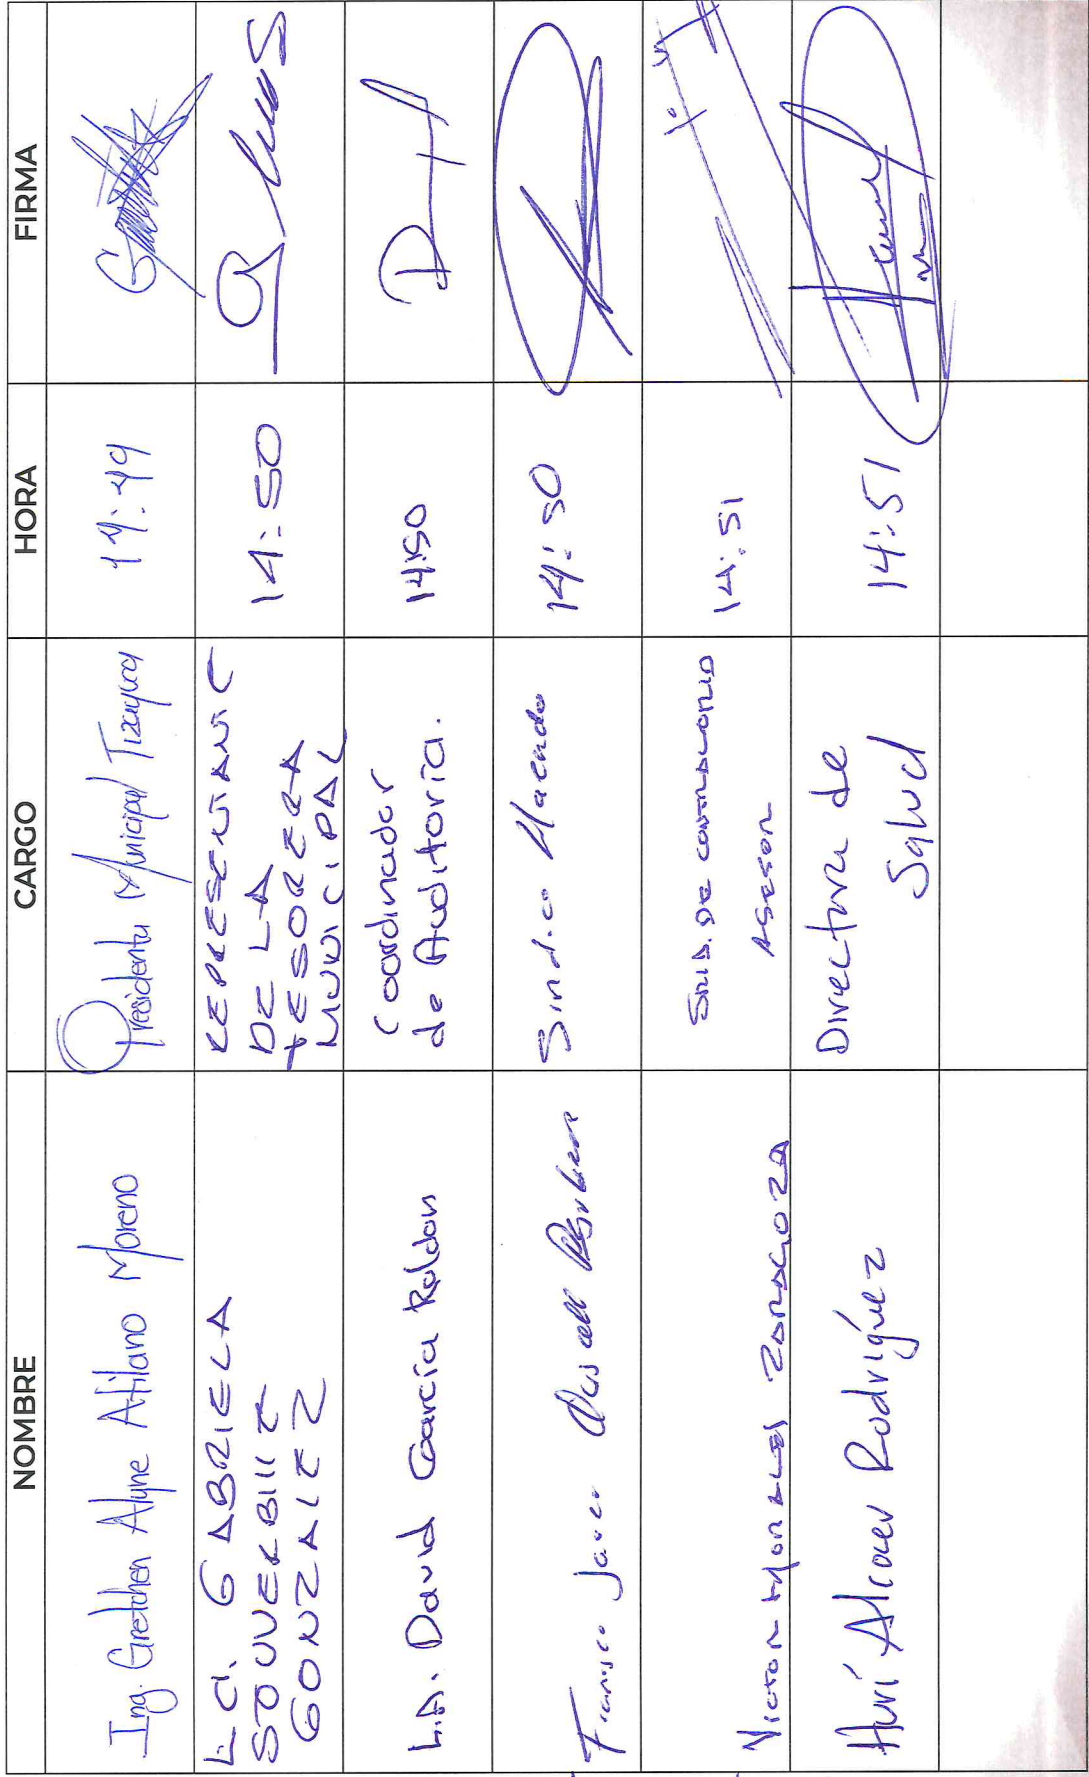 NOMBRE CARGO HORA FIRMA
Ing. Gretchen Alyne Atilano Moreno Presidenta Municipal Tizayuca 14:49
L.C. GABRIELA
SOUVERBILLE
GONZALEZ
REPRESENTANTE
DE LA
TESORERA
MUNICIPAL
14:50
L.A. David García Roldan
Coordinador
de Auditoría.
14:50
Francisco Javier
Sindico Hacendo
14:50
Victor Morales Zaragoza
Asesor
14:51
Aurí Alcocer Rodríguez
Directora de
Salud
14:51